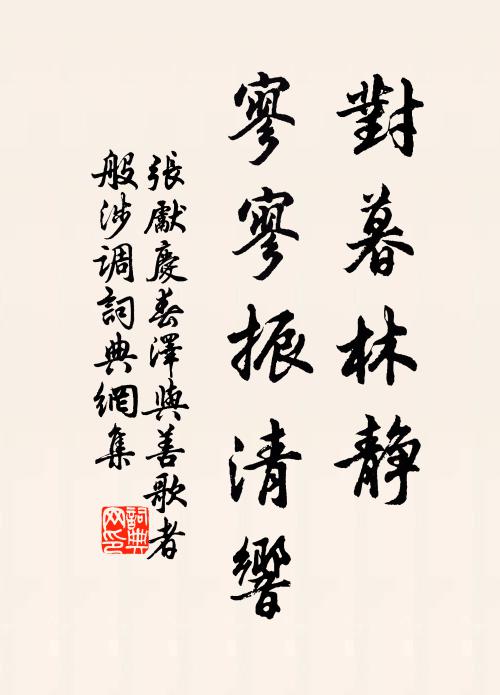 對暮林靜
寥寥振清響
張獻慶春澤與善歌者
般涉调詞典網集
詞典
网印